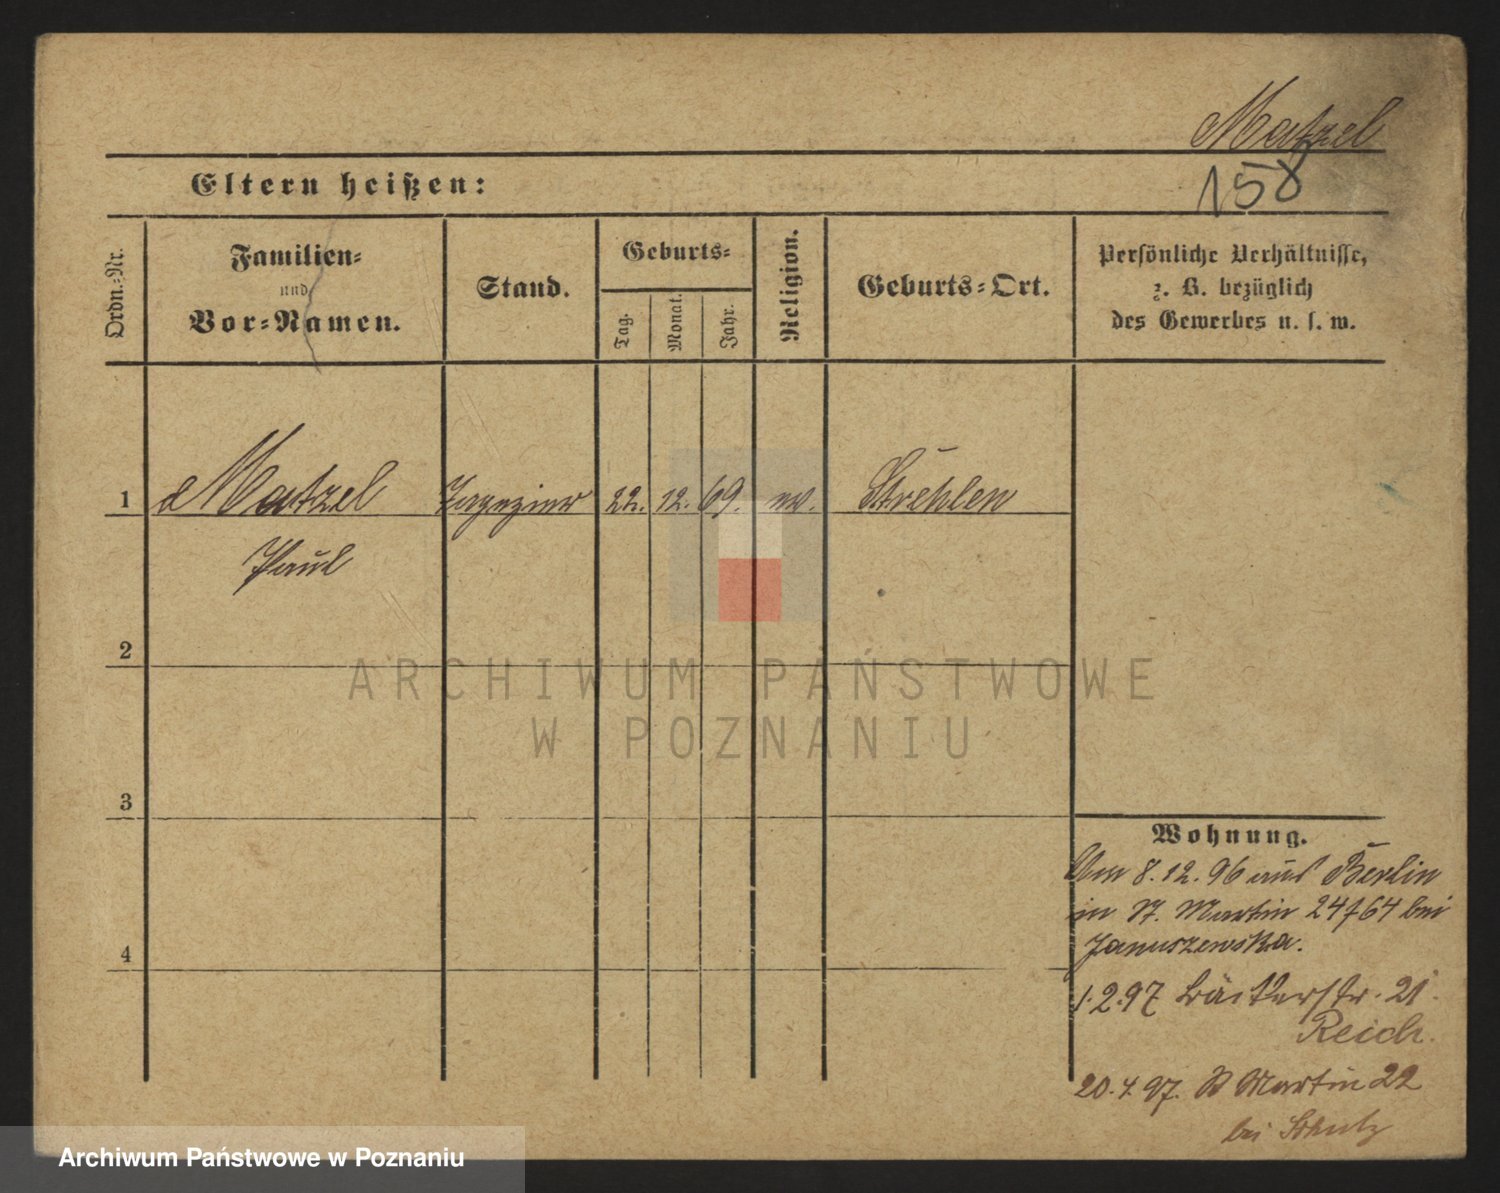 Matzel
158
Eltern heißen:
Ordn.-Nr.
Familien-
und
Vor-Namen.
Stand.
Geburts-
Tag.
Monat.
Jahr.
Religion.
Geburts-Ort.
Persönliche Verhältnisse,
z. B. bezüglich
des Gewerbes u. s. w.
1 Matzel Tapezier 22. 12. 69. ev. Strehlen
Paul
2
3
4
Wohnung.
Am 8.12.96 aus Berlin
in St. Martin 24/64 bei
Januszewska.
1.2.97 Bäckerstr. 21.
Reich.
20.4.97. St Martin 22
bei Schulz
ARCHIWUM PAŃSTWOWE
W POZNANIU
Archiwum Państwowe w Poznaniu